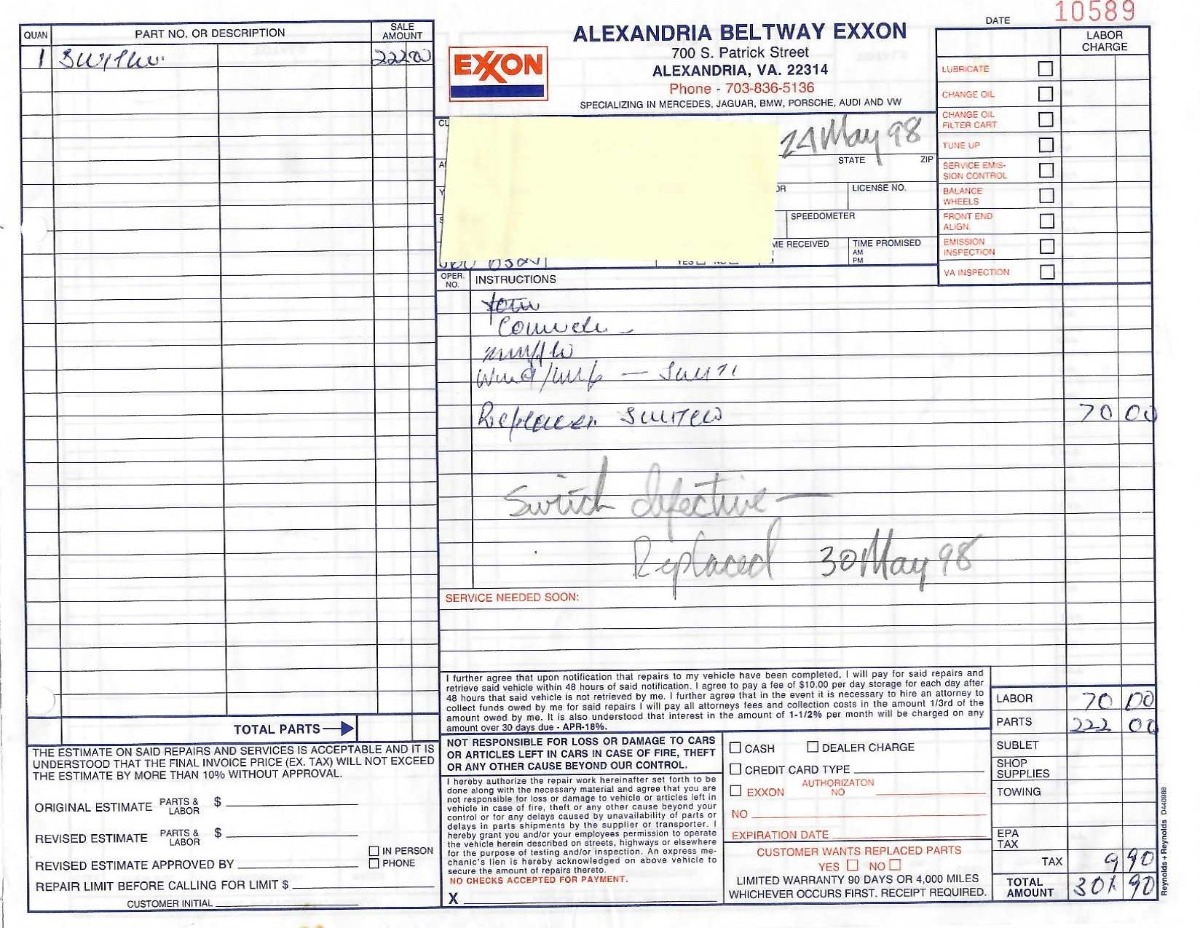 10589
DATE
ALEXANDRIA BELTWAY EXXON
700 S. Patrick Street
ALEXANDRIA, VA. 22314
Phone - 703-836-5136
SPECIALIZING IN MERCEDES, JAGUAR, BMW, PORSCHE, AUDI AND VW
EXXON
QUAN
PART NO. OR DESCRIPTION
SALE
AMOUNT
1
222 00
24 May 98
STATE
ZIP
LICENSE NO.
SPEEDOMETER
TIME PROMISED
AM
PM
LABOR
CHARGE
LUBRICATE
CHANGE OIL
CHANGE OIL
FILTER CART
TUNE UP
SERVICE EMIS-
SION CONTROL
BALANCE
WHEELS
FRONT END
ALIGN.
EMISSION
INSPECTION
VA INSPECTION
OPER.
NO.
INSTRUCTIONS
70 00
Switch defective —
Replaced 30 May 98
SERVICE NEEDED SOON:
TOTAL PARTS
THE ESTIMATE ON SAID REPAIRS AND SERVICES IS ACCEPTABLE AND IT IS
UNDERSTOOD THAT THE FINAL INVOICE PRICE (EX. TAX) WILL NOT EXCEED
THE ESTIMATE BY MORE THAN 10% WITHOUT APPROVAL.
ORIGINAL ESTIMATE PARTS & LABOR $
REVISED ESTIMATE PARTS & LABOR $
REVISED ESTIMATE APPROVED BY
IN PERSON
PHONE
REPAIR LIMIT BEFORE CALLING FOR LIMIT $
CUSTOMER INITIAL
I further agree that upon notification that repairs to my vehicle have been completed, I will pay for said repairs and
retrieve said vehicle within 48 hours of said notification. I agree to pay a fee of $10.00 per day storage for each day after
48 hours that said vehicle is not retrieved by me. I further agree that in the event it is necessary to hire an attorney to
collect funds owed by me for said repairs I will pay all attorneys fees and collection costs in the amount 1/3rd of the
amount owed by me. It is also understood that interest in the amount of 1-1/2% per month will be charged on any
amount over 30 days due - APR-18%.
NOT RESPONSIBLE FOR LOSS OR DAMAGE TO CARS
OR ARTICLES LEFT IN CARS IN CASE OF FIRE, THEFT
OR ANY OTHER CAUSE BEYOND OUR CONTROL.
I hereby authorize the repair work hereinafter set forth to be
done along with the necessary material and agree that you are
not responsible for loss or damage to vehicle or articles left in
vehicle in case of fire, theft or any other cause beyond your
control or for any delays caused by unavailability of parts or
delays in parts shipments by the supplier or transporter. I
hereby grant you and/or your employees permission to operate
the vehicle herein described on streets, highways or elsewhere
for the purpose of testing and/or inspection. An express me-
chanic's lien is hereby acknowledged on above vehicle to
secure the amount of repairs thereto.
NO CHECKS ACCEPTED FOR PAYMENT.
X
CASH
DEALER CHARGE
CREDIT CARD TYPE
EXXON
AUTHORIZATON
NO
NO.
EXPIRATION DATE
CUSTOMER WANTS REPLACED PARTS
YES NO
LIMITED WARRANTY 90 DAYS OR 4,000 MILES
WHICHEVER OCCURS FIRST. RECEIPT REQUIRED.
LABOR 70 00
PARTS 222 00
SUBLET
SHOP
SUPPLIES
TOWING
EPA
TAX
TAX 9 90
TOTAL
AMOUNT 301 90